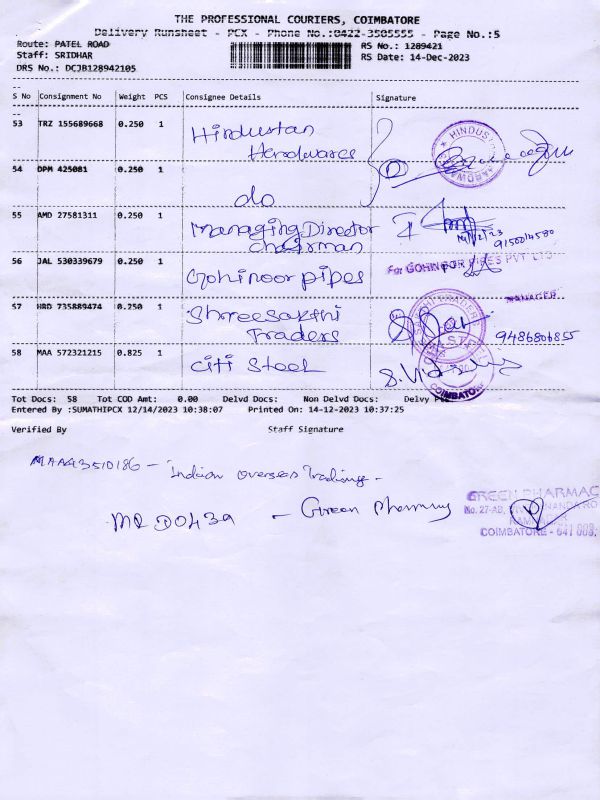 THE PROFESSIONAL COURIERS, COIMBATORE
Delivery Runsheet - PCX - Phone No.:0422-3505555 - Page No.:5
Route: PATEL ROAD RS No.: 1289421
Staff: SRIDHAR RS Date: 14-Dec-2023
DRS No.: DCJB128942105
S No Consignment No Weight PCS Consignee Details Signature
53 TRZ 155689668 0.250 1 Hindustan
Hardwares
54 DPM 425081 0.250 1 do
55 AMD 27581311 0.250 1 Managing Director
chairman
9150014580
56 JAL 530339679 0.250 1 Gohinoor pipes
For GOHINOOR PIPES PVT LTD
MANAGER
57 HRD 735889474 0.250 1 Shreesakthi
Traders
9486806855
58 MAA 572321215 0.825 1 Citi Steel
COIMBATORE
Tot Docs: 58 Tot COD Amt: 0.00 Delvd Docs: Non Delvd Docs: Delvy
Entered By :SUMATHIPCX 12/14/2023 10:38:07 Printed On: 14-12-2023 10:37:25
Verified By Staff Signature
MAA43510186 - Indian Overseas Trading -
- Green Pharmacy
GREEN PHARMAC
No. 27-AB,
COIMBATORE - 641 009.